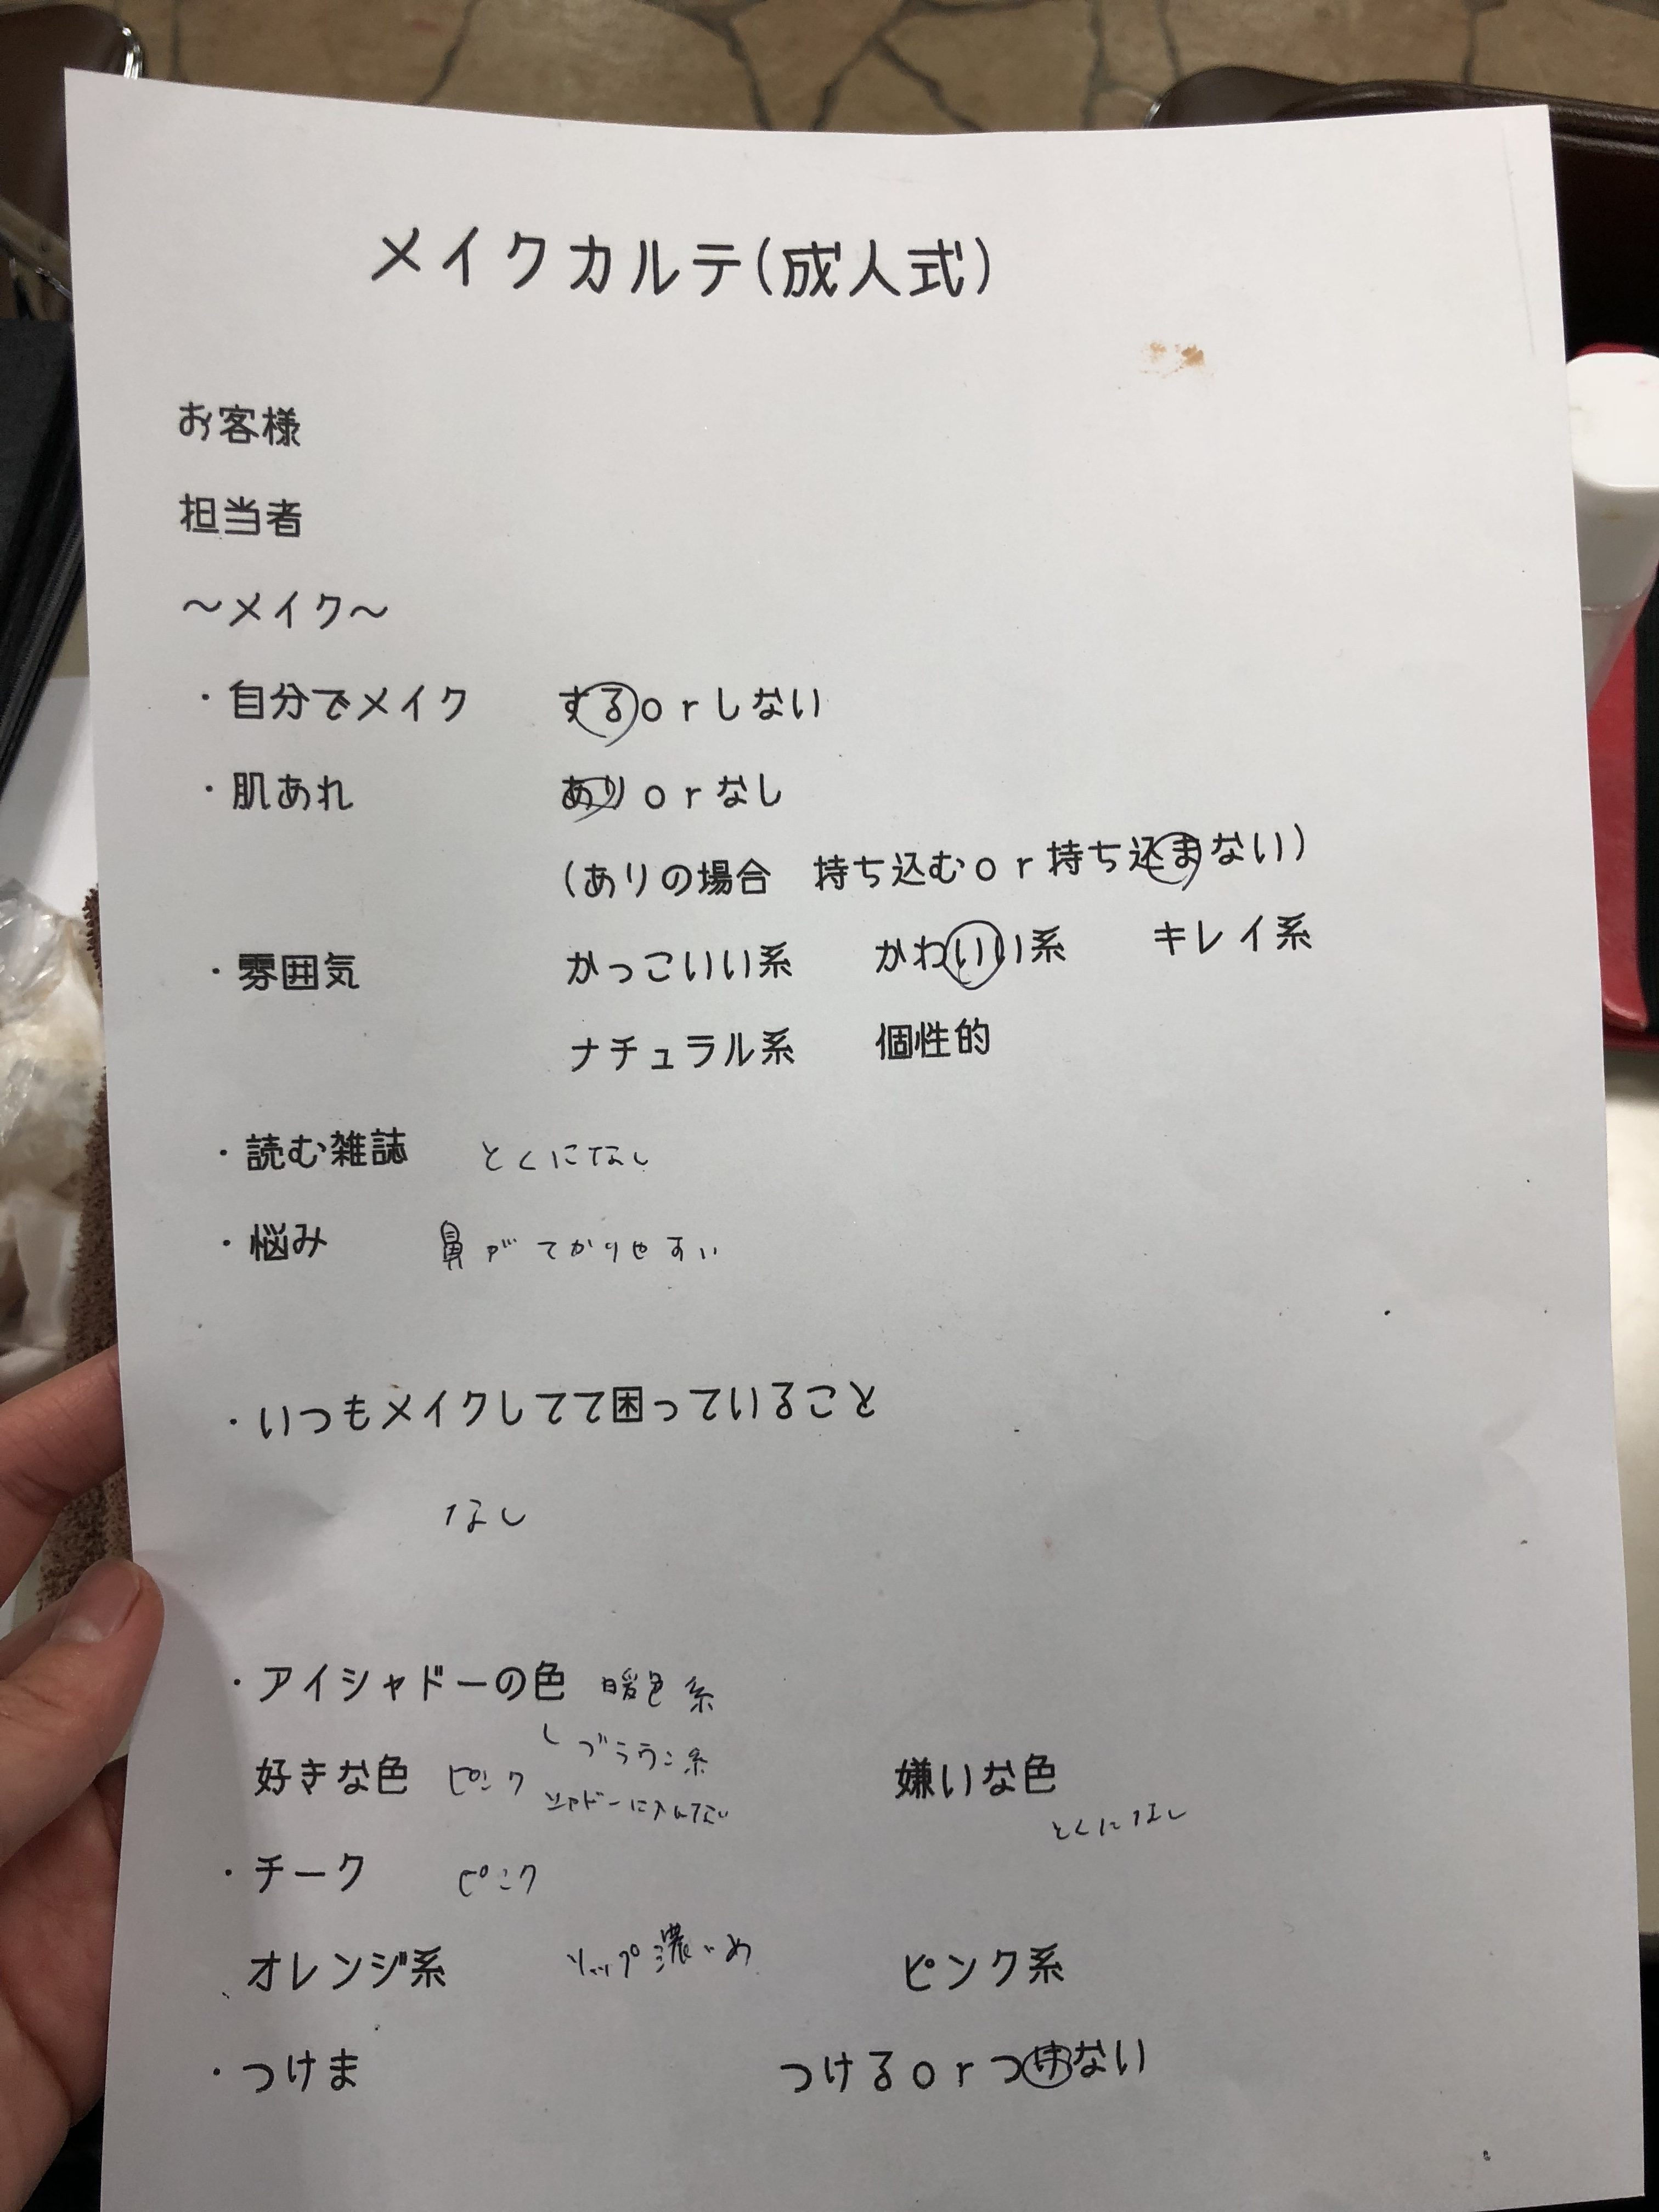 メイクカルテ(成人式)
お客様
担当者
～メイク～
・自分でメイク するorしない
・肌あれ ありorなし
(ありの場合 持ち込むor持ち込まない)
・雰囲気 かっこいい系 かわいい系 キレイ系
ナチュラル系 個性的
・読む雑誌 とくになし
・悩み 鼻がてかりやすい
・いつもメイクしてて困っていること
なし
・アイシャドーの色 暖色系
ブラウン系
好きな色 ピンク 嫌いな色
シャドーに入れない
とくになし
・チーク ピンク
オレンジ系 リップ濃いめ ピンク系
・つけま つけるorつけない